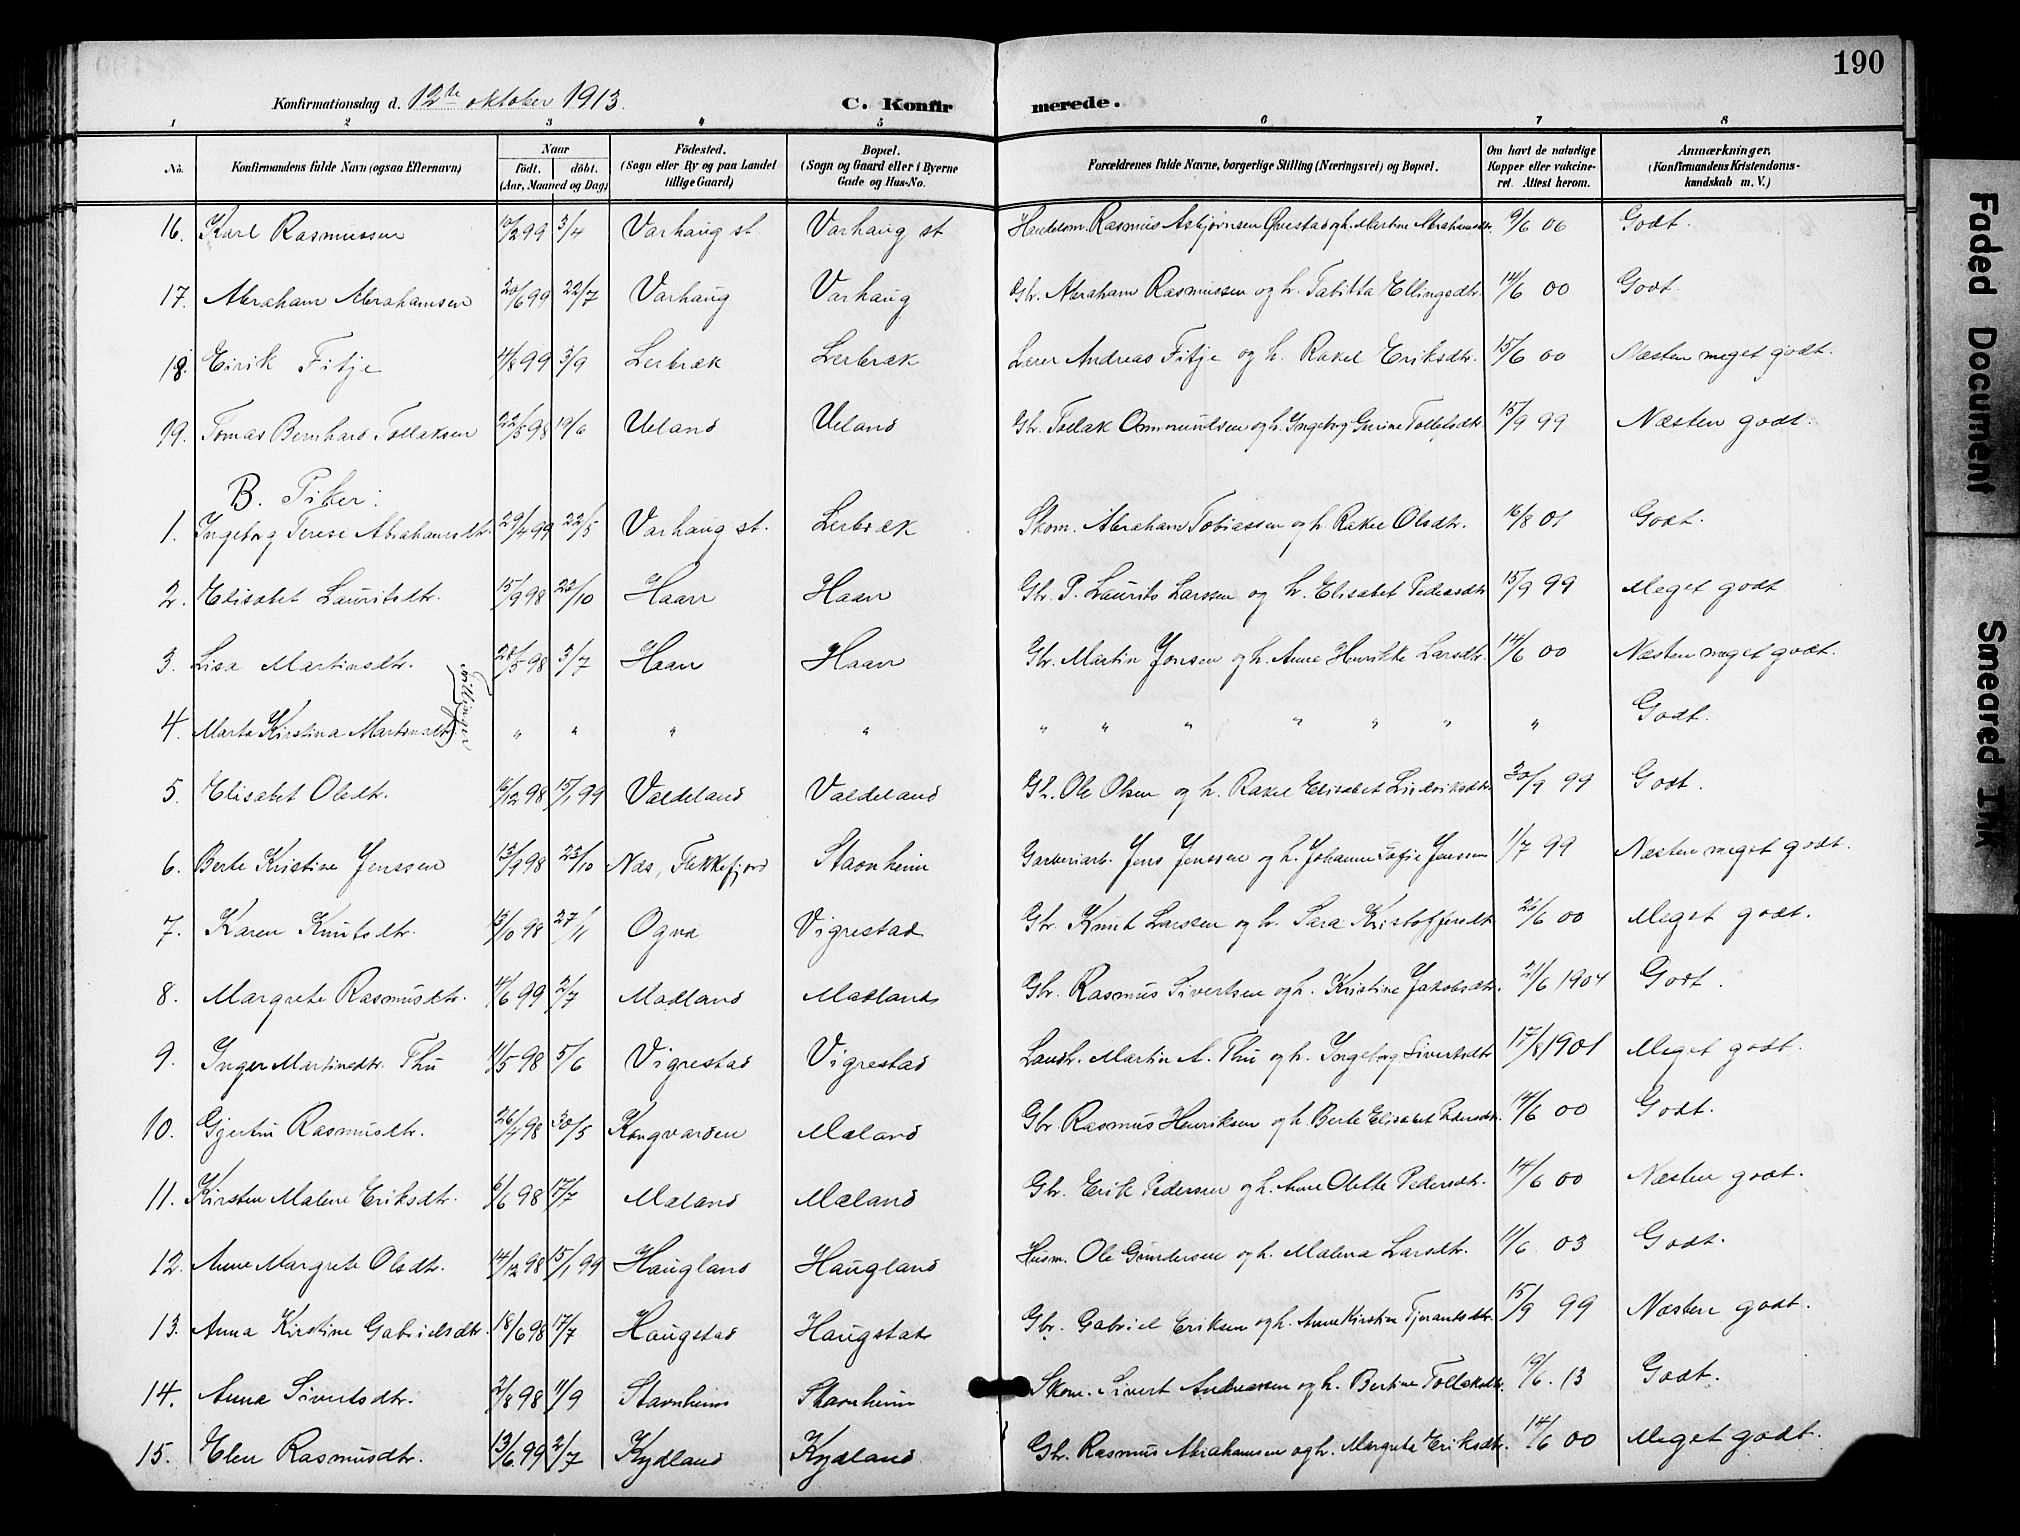 190
Konfirmationsdag d. 12te oktober 1913. C. Konfirmerede.
1 2 3 4 5 6 7 8
No. Konfirmandens fulde Navn (ogsaa Efternavn) Naar født. døbt. (Aar, Maaned og Dag) Fødested. (Sogn eller By og paa Landet tillige Gaard) Bopæl. (Sogn og Gaard eller i Byerne Gade og Hus-No.) Forældrenes fulde Navne, borgerlige Stilling (Næringsvei) og Bopæl. Om havt de naturlige Kopper eller vakcineret. Attest herom. Anmærkninger. (Konfirmandens Kristendomskundskab m. V.)
16. Karl Rasmussen 10/2 99 3/4 Varhaug st. Varhaug st Handelsm. Rasmus Asbjørnsen og h. Martine Abrahamsdtr. 9/6 06 Godt.
17. Abraham Abrahamsen 20/6 99 22/7 Varhaug Varhaug Gbr. Abraham Rasmussen og h. Tabitta Ellingsdtr. 14/6 00 Godt.
18. Eirik Fitje 4/8 99 3/9 Lerbræk Lerbræk Lærer Andreas Fitje og h. Rakel Eriksdtr. 15/6 00 Næsten meget godt.
19. Tomas Bernhard Tollaksen 22/5 98 19/6 Ueland Ueland Gbr. Tollak Ommundsen og h. Ingeborg Gurine Tollefsdtr. 15/9 99 Næsten godt.
B. Piker:
1. Ingeborg Terese Abrahamsdtr. 29/4 99 22/5 Varhaug st. Lerbræk Skom. Abraham Tobiassen og h. Rakel Olsdtr. 16/8 01 Godt.
2. Elisabet Lauritsdtr. 15/9 98 22/10 Haar Haar Gbr. P. Laurits Larssen og h. Elisabet Pedersdtr 15/9 99 Meget godt
3. Lisa Martinsdtr. 28/5 98 3/7 Haar Haar Gbr. Martin Jonsen og h. Anne Henrikke Larsdtr. 14/6 00 Næsten meget godt.
tvillinger
4. Marta Kirstina Martinsdtr. " " " " " " " " " " " Godt.
5. Elisabet Olsdtr. 16/12 98 15/1 99 Valdeland Valdeland Gbr. Ole Olsen og h. Rakel Elisabet Ludviksdtr 30/9 99 Godt.
6. Berte Kristine Jenssen 13/9 98 23/10 Næs, Flekkefjord Stavnheim Garveriarb. Jens Jenssen og h. Johanne Sofie Jenssen 1/7 99 Næsten meget godt.
7. Karen Knutsdtr. 13/10 98 27/11 Ogna Vigrestad Gbr. Knut Larssen og h. Sara Kristoffersdtr /6 00 Meget godt.
8. Margrete Rasmusdtr. 4/6 99 2/7 Madland Madland Gbr. Rasmus Sivertsen og h. Kristine Jakobsdtr. 21/6 1904 Godt.
9. Inger Martinsdtr. Thu 11/5 98 5/6 Vigrestad Vigrestad Landh. Martin A. Thu og h. Ingeborg Sivertsdtr 17/8 1901 Meget godt.
10. Gjertru Rasmusdtr. 26/4 98 30/5 Kongvarden Mæland Gbr Rasmus Henriksen og h. Berte Elisabet Pedersdtr. 14/6 00 Godt.
11. Kirsten Malene Eriksdtr. 6/6 98 17/7 Mæland Mæland Gbr. Erik Pedersen og h. Anne Olette Pedersdtr. 14/6 00 Næsten godt.
12. Anne Margrete Olsdtr. 14/12 98 15/1 99 Haugland Haugland Husm. Ole Gundersen og h. Malena Larsdtr. 11/6 03 Godt.
13. Anna Kirstine Gabrielsdtr. 18/6 98 17/7 Haugstad Haugstad Gbr. Gabriel Eriksen og h. Anne Kirstine Tjerantsdtr. 15/9 99 Næsten godt.
14. Anna Sivertsdtr. 2/8 98 11/9 Stavnheim Stavnheim Skom. Sivert Andreassen og h. Bertine Tollaksdtr. 19/6. 13 Godt.
15. Elen Rasmusdtr. 13/6 99 2/7 Kydland Kydland Gbr. Rasmus Abrahamsen og h. Margrete Eriksdtr. 14/6 00 Meget godt.
Faded Document
Smeared Ink